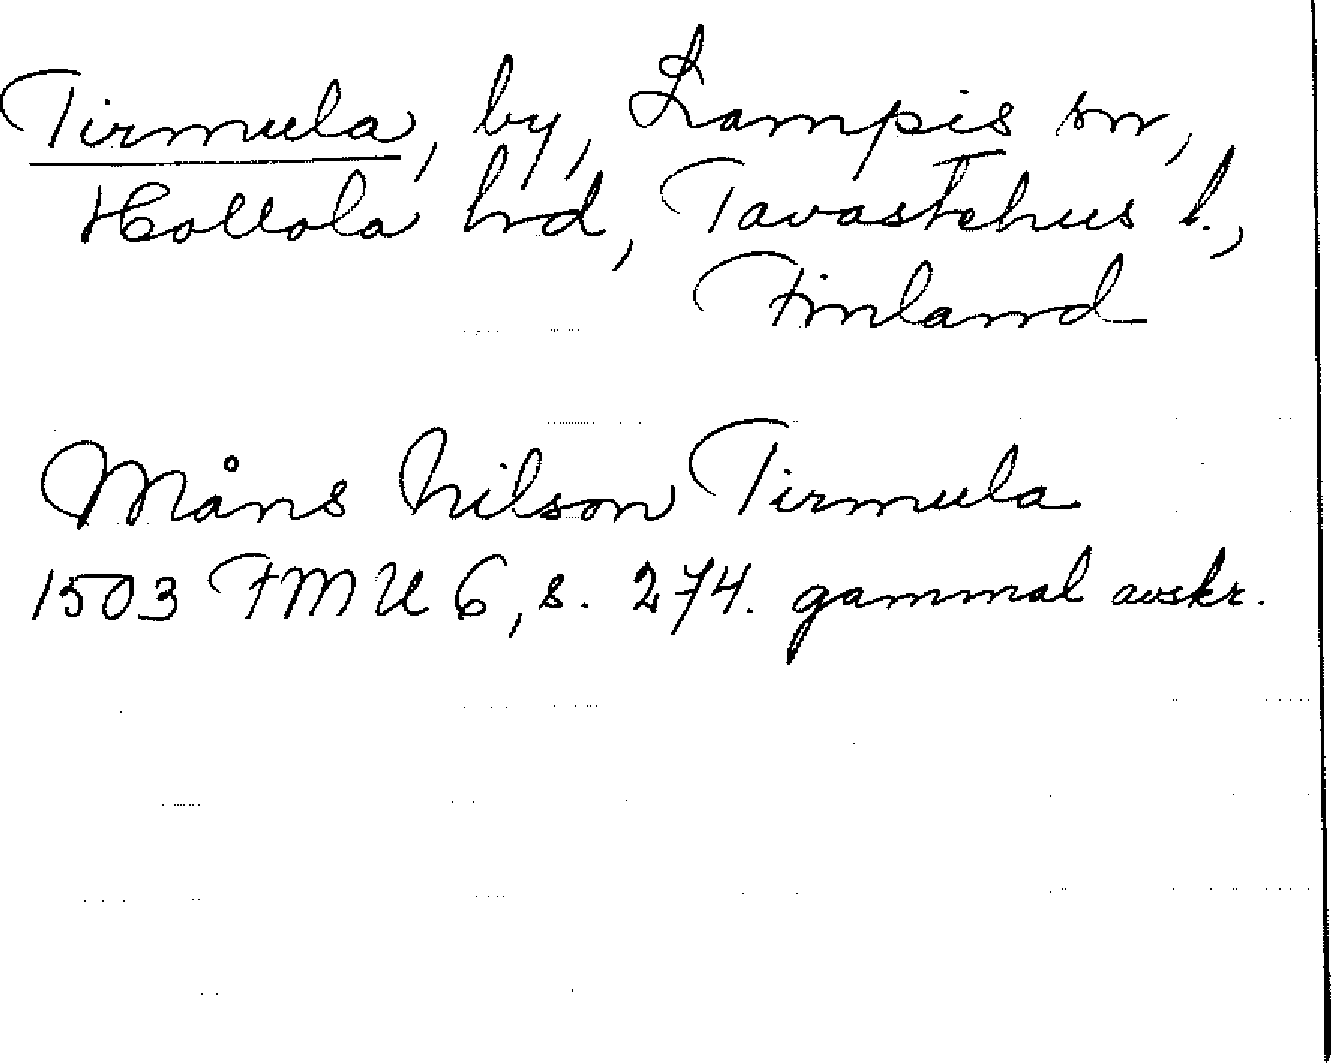 Tirmula, by, Lampis sn,
Hollola hrd, Tavastehus l.,
Finland
Måns Nilson Tirmula
1503 FMU 6, s. 274. gammal avskr.